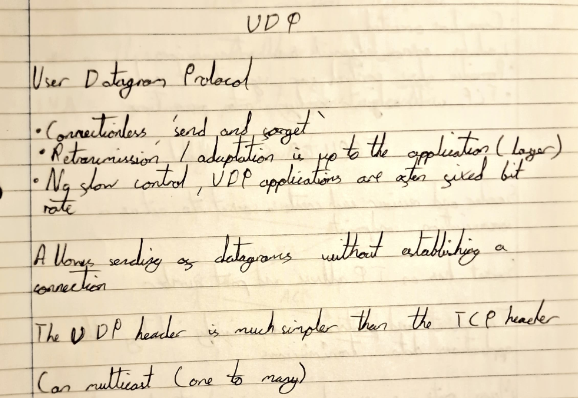 UDP
User Datagram Protocol
• Connectionless 'send and forget'
• Retransmission / adaptation is up to the application (Layer)
• No flow control, UDP applications are often fixed bit
rate
Allows sending of datagrams without establishing a
connection
The UDP header is much simpler than the TCP header
Can multicast (one to many)